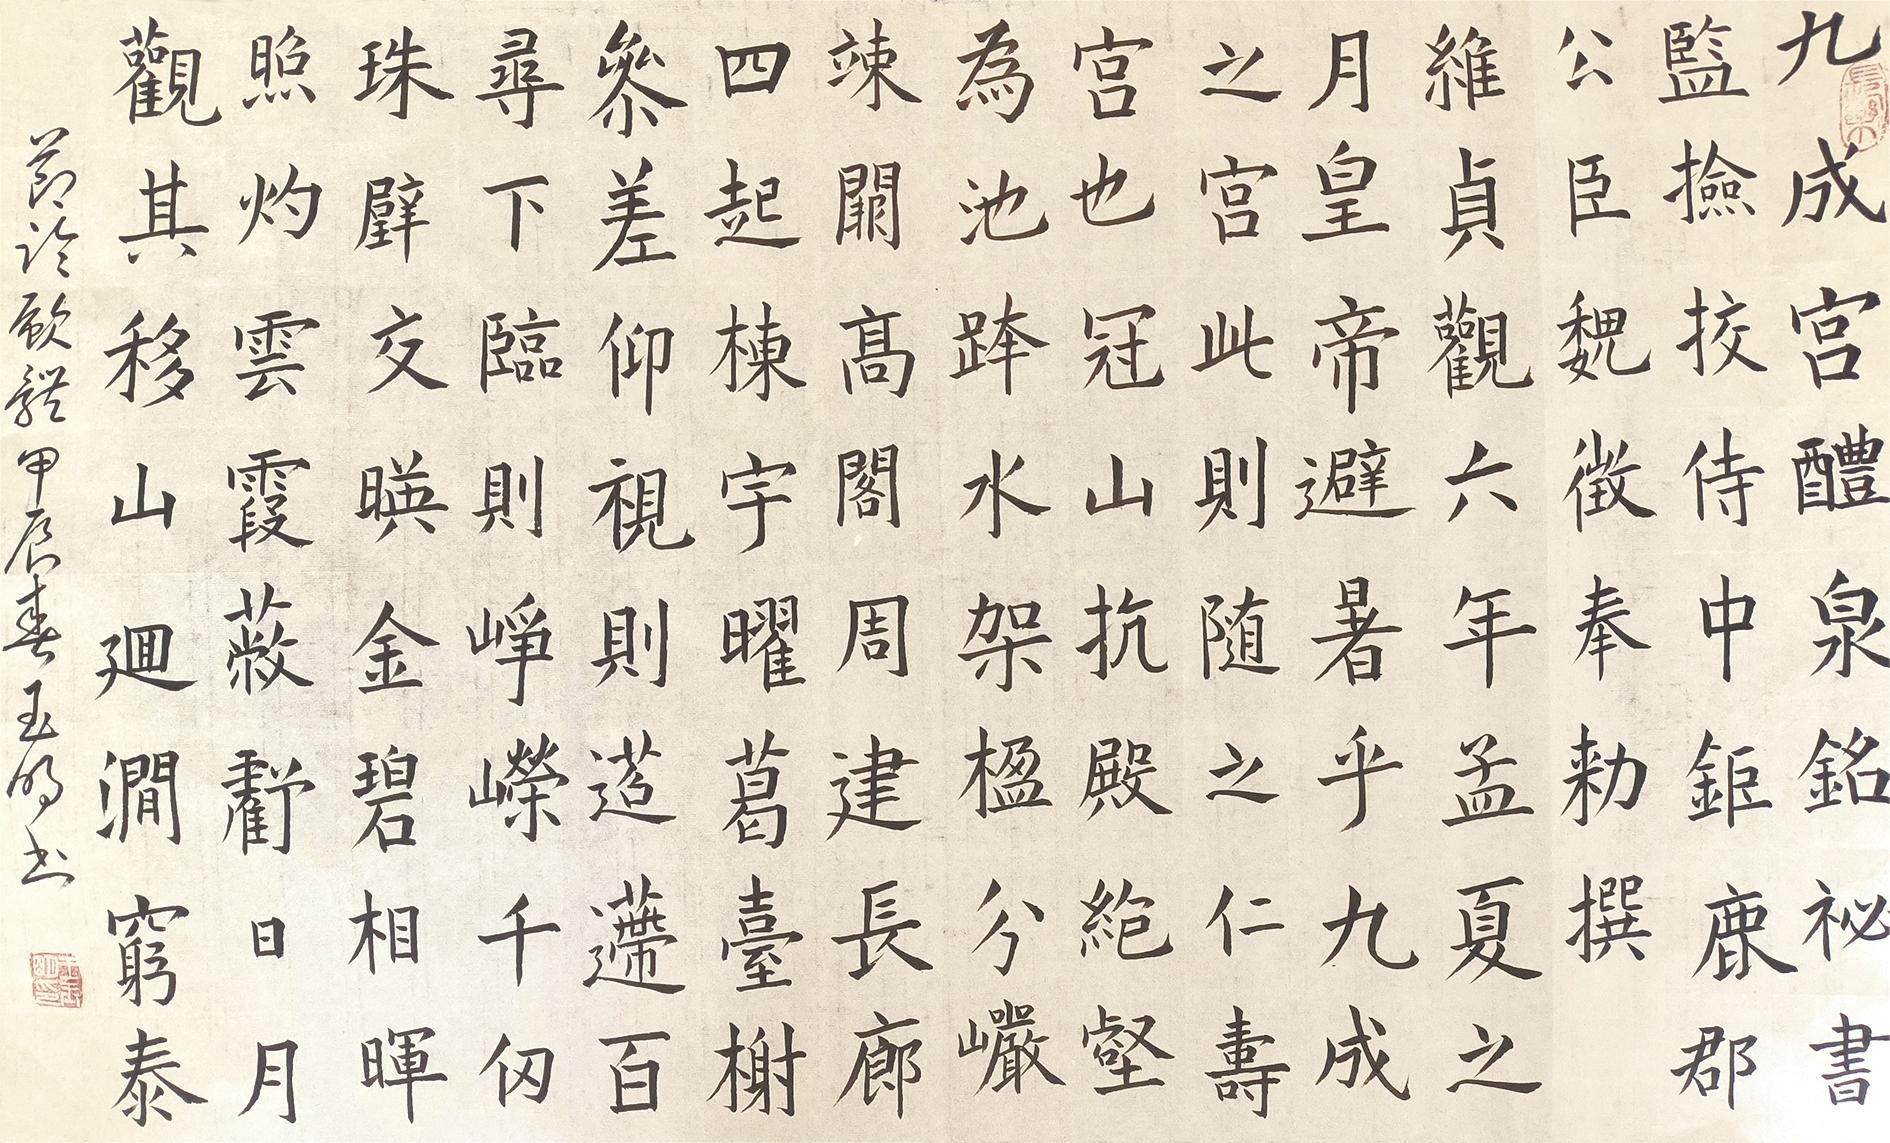 九成宮醴泉銘祕書
監撿挍侍中鉅鹿郡
公臣魏徵奉勑撰
維貞觀六年孟夏之
月皇帝避暑乎九成
之宮此則随之仁壽
宮也冠山抗殿絕壑
為池跨水架楹分巖
竦闕髙閣周建長廊
四起棟宇曜葛臺榭
參差仰視則迢遰百
尋下臨則崢嶸千仞
珠璧交暎金碧相暉
照灼雲霞蔽虧日月
觀其移山廻澗窮泰
節臨歐體甲辰春玉明书